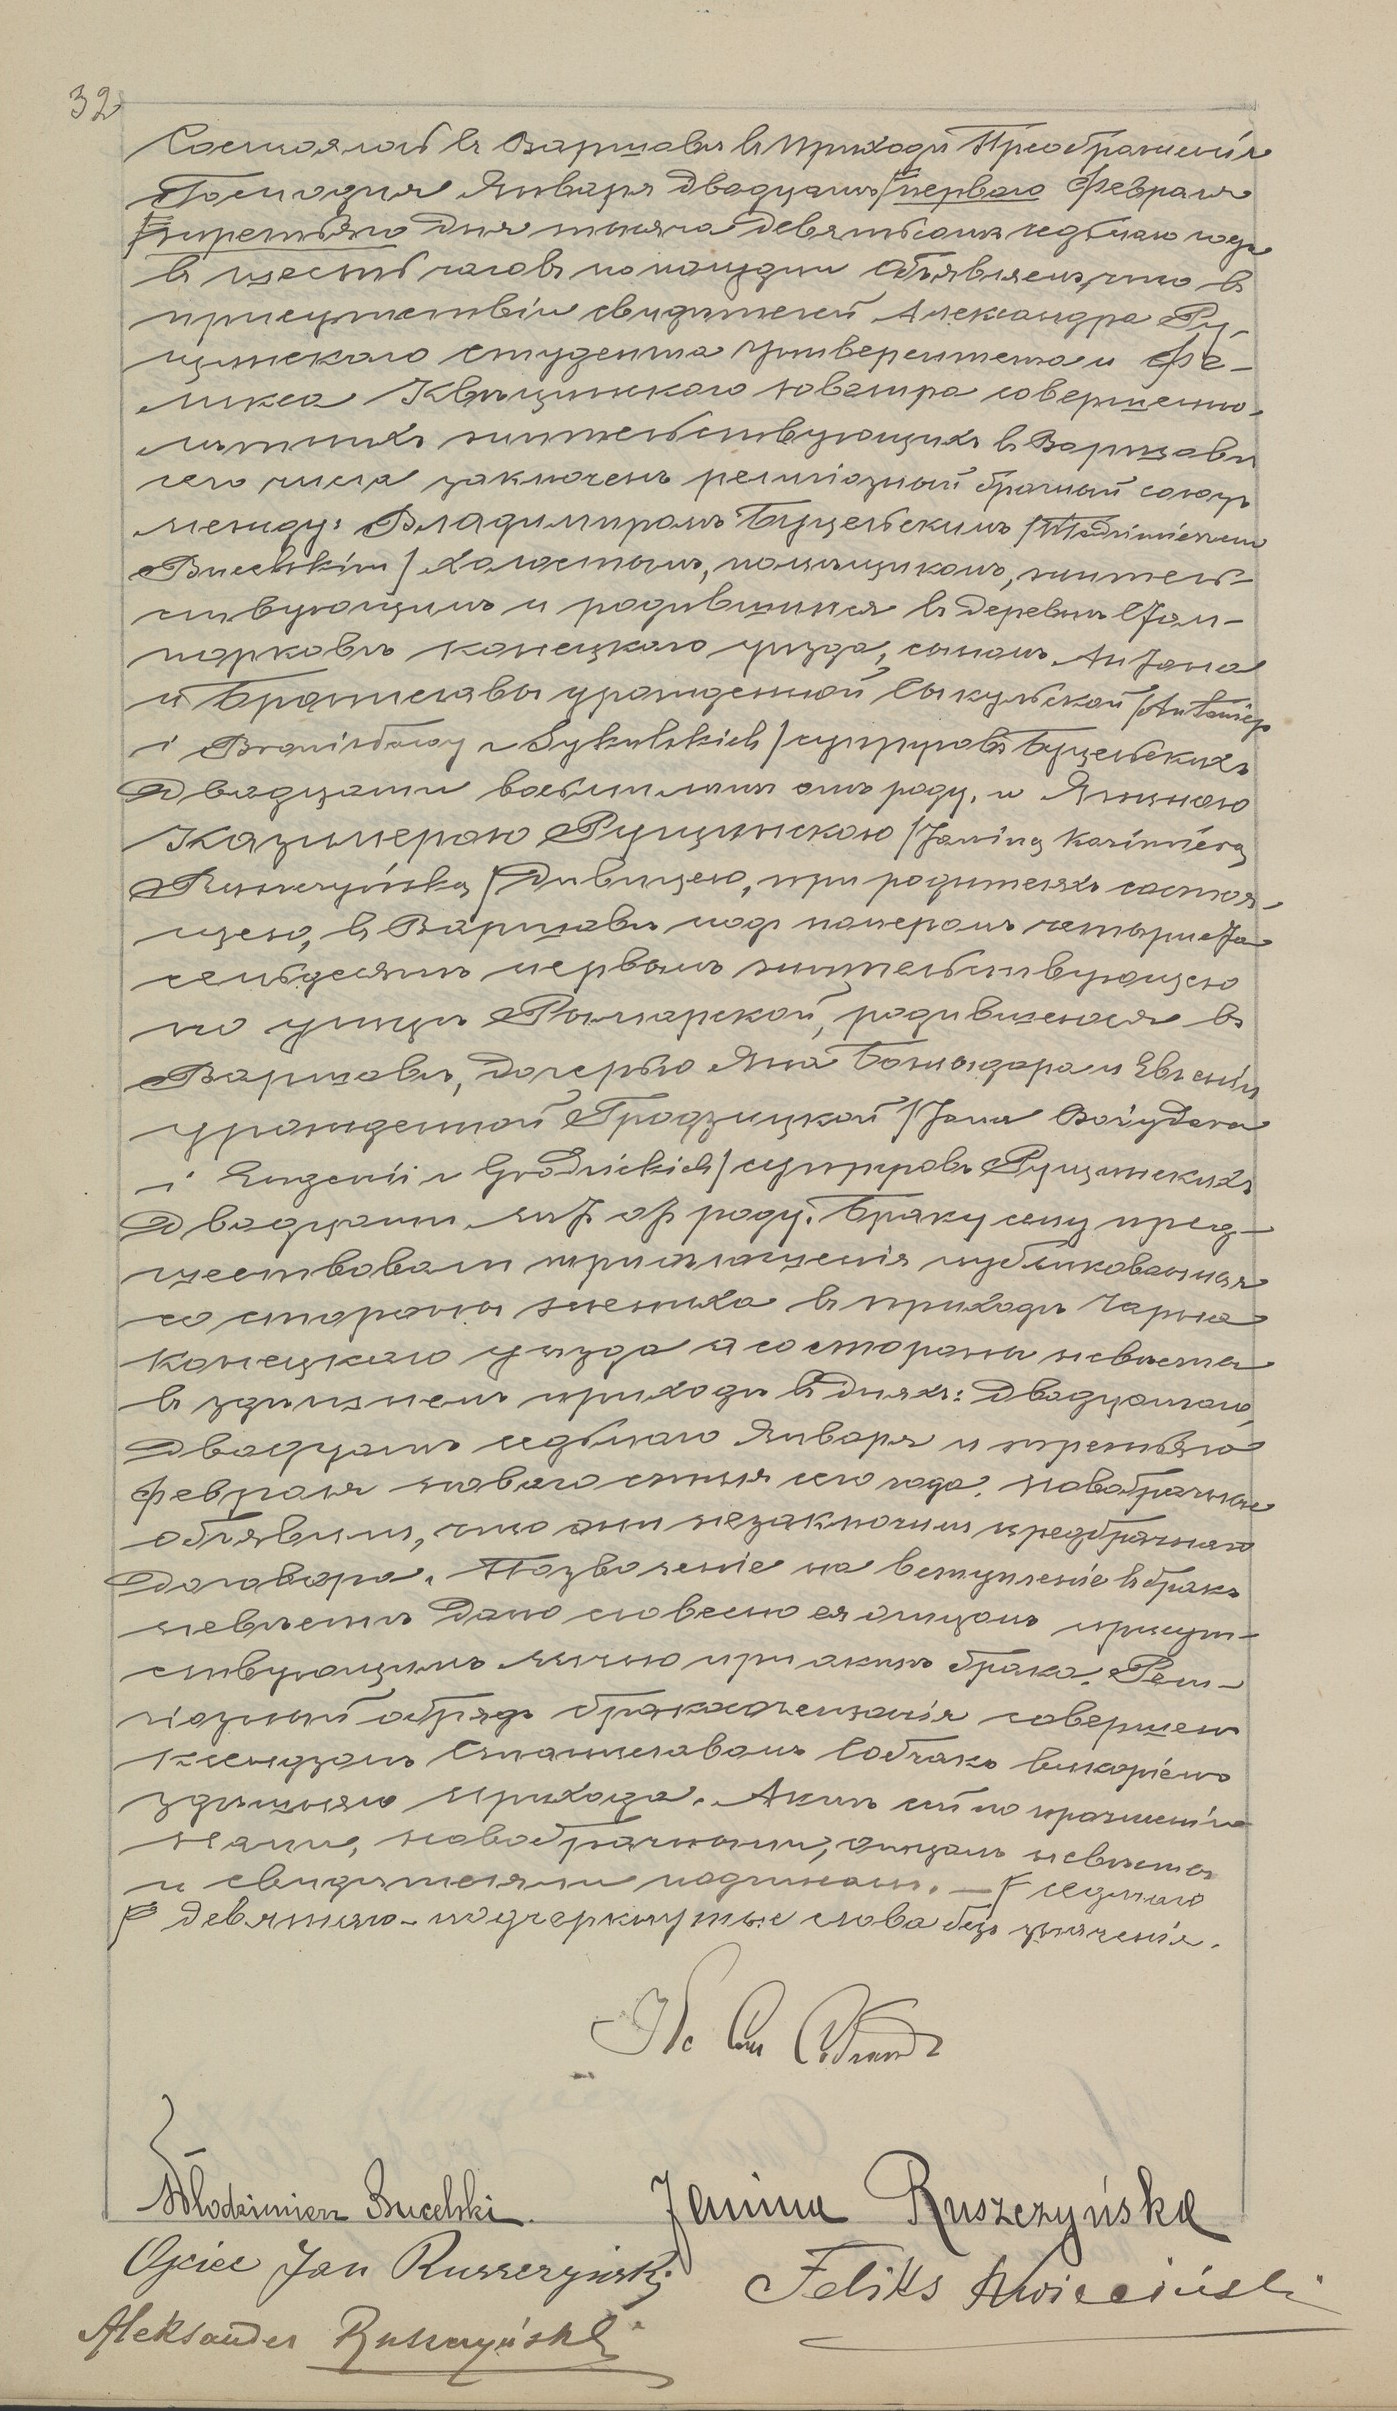 32
Состоялось въ Варшавѣ въ приходѣ Преображенія
Господня Января двадцать /первого Февраля
третьяго дня тысяча девятьсотъ седьмаго года
въ шесть часовъ по полудни Объявляемъ, что въ
присутствіи свидѣтелей Александра Ру-
щинскаго студента Университета и Фе-
ликса Квѣцинскаго ювелира совершенно-
лѣтнихъ жительствующихъ въ Варшавѣ
сего числа заключенъ религіозный брачный союзъ
между: Владимиромъ Буцельскимъ /Włodzimierzem
Bucelskim/ холостымъ, помѣщикомъ, житель-
ствующимъ и родившимся въ деревнѣ
Конецкаго уѣзда, сыномъ Антона
и Брониславы урожденной Сыкульской /Antoniego
i Bronisławy z Sykulskich/ супруговъ Буцельскихъ
двадцати восьми лѣтъ отъ роду, и Яниною
Казимерою Рущинскою /Janiną Kazimierą
Ruszczyńską/ дѣвицею, при родителяхъ состоя-
щею, въ Варшавѣ подъ номеромъ четыреста
семьдесятъ первымъ жительствующею
по улицѣ Рымарской, родившеюся въ
Варшавѣ, дочерью Яна Божыдара и Евгеніи
урожденной Гродзицкой /Jana Bożydara
i Eugenii z Grodzickich/ супруговъ Рущинскихъ
двадцати лѣтъ отъ роду. Браку сему пред-
шествовали три оглашенія публикованныя
со стороны жениха въ приходѣ Чарна
Конецкаго уѣзда а со стороны невѣсты
въ здѣшнемъ приходѣ въ дняхъ: двадцатаго,
двадцать седьмаго Января и третьяго
Февраля новаго стиля сего года. Новобрачные
объявили, что они незаключили предбрачнаго
договора. Позволеніе на вступленіе въ бракъ
невѣстѣ дано словесно ея отцомъ присут-
ствующимъ лично при актѣ брака. Рели-
гіозный обрядъ бракосочетанія совершенъ
Ксендзомъ Станиславомъ викаріемъ
здѣшняго прихода. Актъ сей по прочтеніи
нами, новобрачными, отцомъ невѣсты
и свидѣтелями подписанъ. — / седьмаго
/ девятаго - подчеркнутые слова безъ значенія.
Włodzimierz Bucelski Janina Ruszczyńska
Ojciec Jan Ruszczyński Feliks Kwieciński
Aleksander Ruszczyński